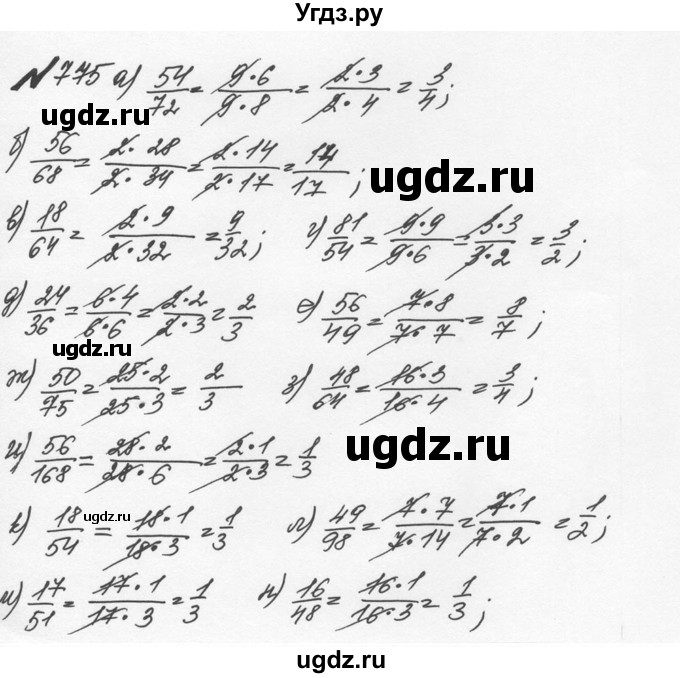 Угдз.ру
№775 а) 54/72 = 9·6/9·8 = 2·3/2·4 = 3/4;
ugdz.ru
б) 56/68 = 2·28/2·34 = 2·14/2·17 = 14/17;
ugdz.ru
в) 18/64 = 2·9/2·32 = 9/32; г) 81/54 = 9·9/9·6 = 3·3/3·2 = 3/2;
д) 24/36 = 6·4/6·6 = 2·2/2·3 = 2/3 е) 56/49 = 7·8/7·7 = 8/7;
ugdz.ru
ж) 50/75 = 25·2/25·3 = 2/3 з) 48/64 = 16·3/16·4 = 3/4;
и) 56/168 = 28·2/28·6 = 2·1/2·3 = 1/3
ugdz.ru
к) 18/54 = 18·1/18·3 = 1/3 л) 49/98 = 7·7/7·14 = 7·1/7·2 = 1/2;
ugdz.ru
м) 17/51 = 17·1/17·3 = 1/3 н) 16/48 = 16·1/16·3 = 1/3;
ugdz.ru